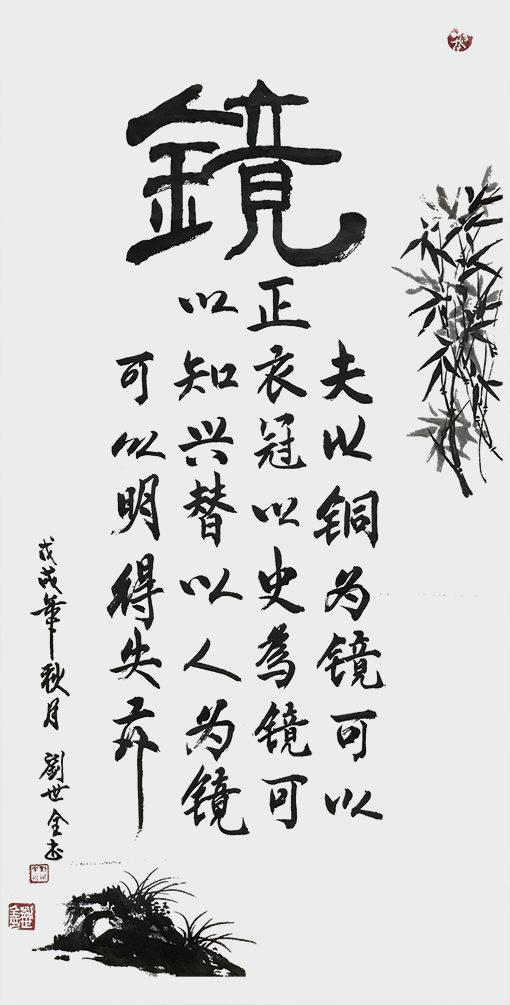 鏡
夫以铜为镜可以
正衣冠以史為镜可
以知兴替以人为镜
可以明得失
戊戌年秋月 劉世全书